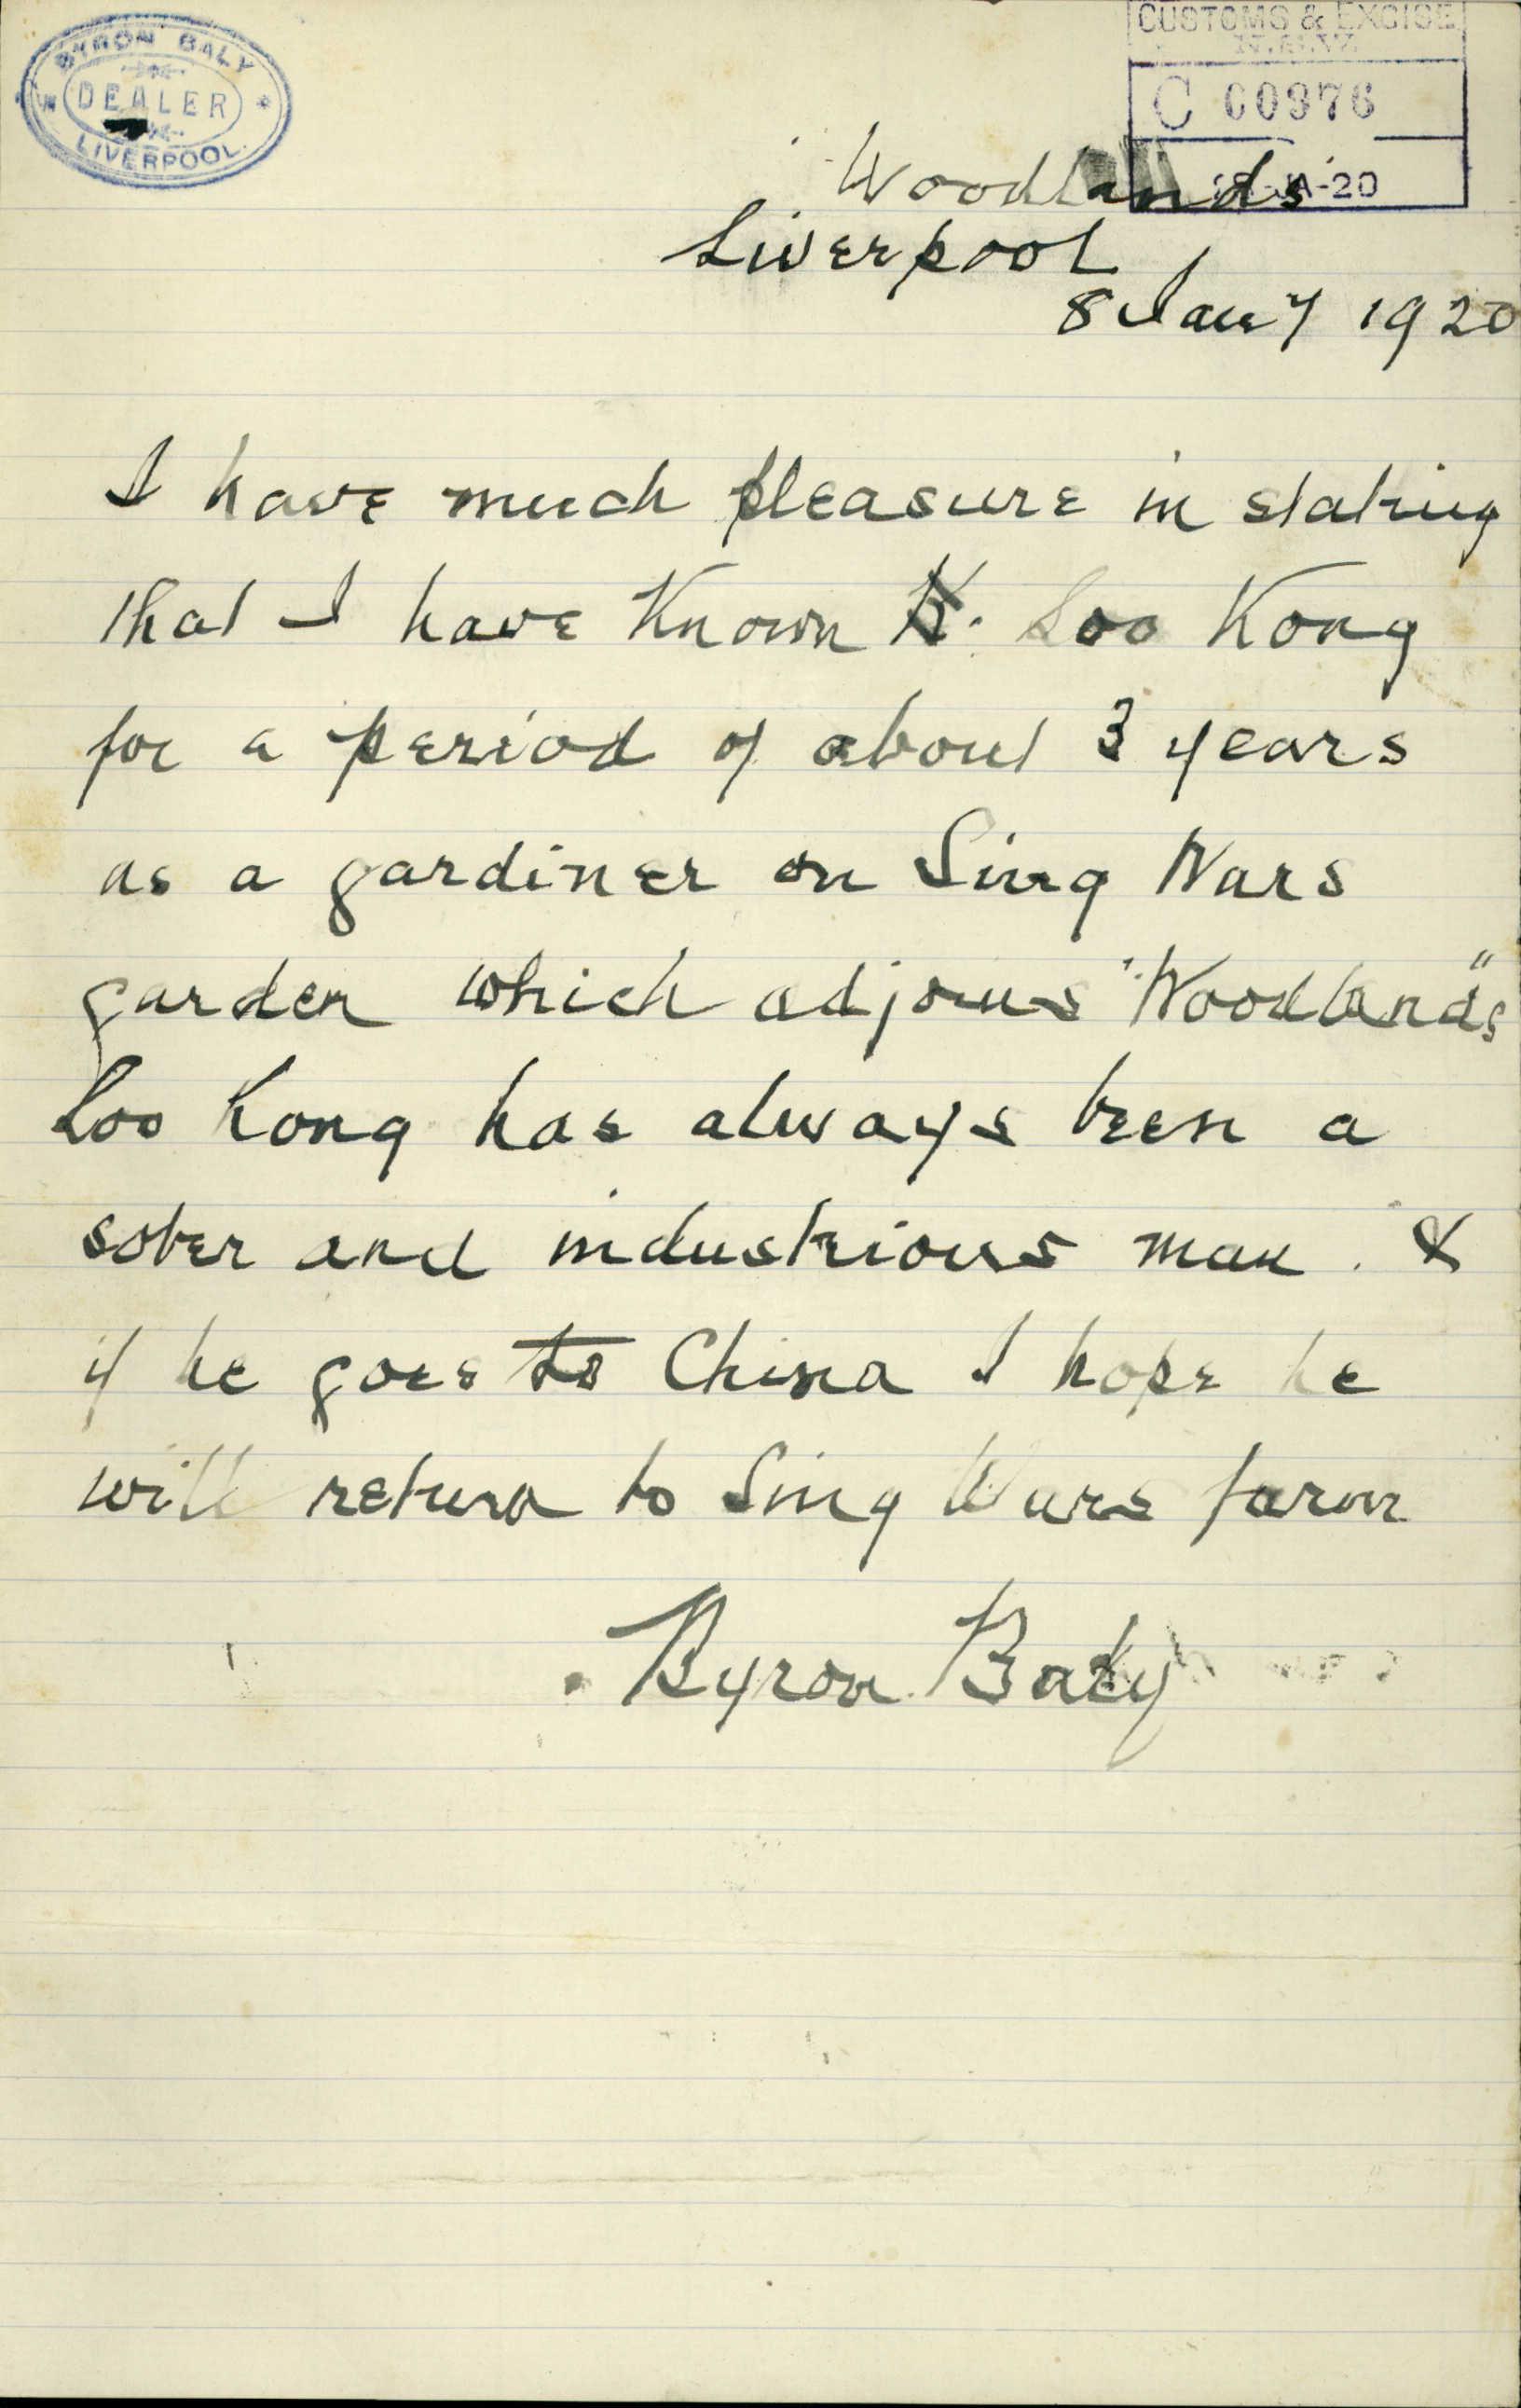 BYRON BALY
DEALER
LIVERPOOL.
CUSTOMS & EXCISE
C 00976
JA-20
"Woodlands"
Liverpool
8 Jany 1920
I have much pleasure in stating
that I have Known Loo Kong
for a period of about 3 years
as a gardiner on Sing Wars
garden which adjoins "Woodlands"
Loo Kong has always been a
sober and industrious man. &
if he goes to China I hope he
will return to Sing Wars farm
Byron Baly